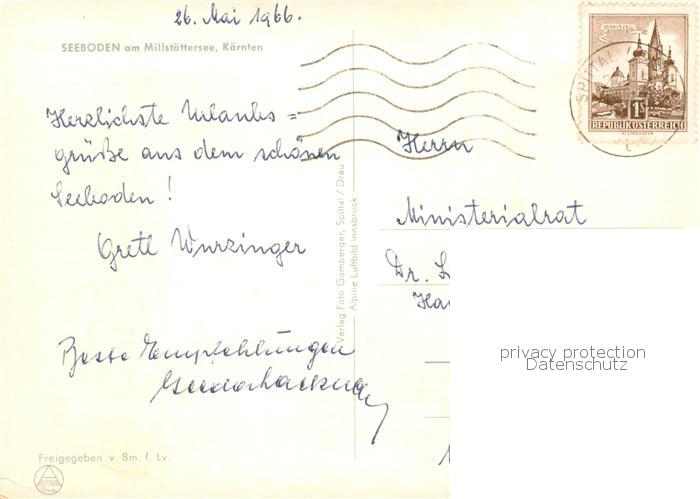 26. Mai 1966.
SEEBODEN am Millstättersee, Kärnten
Herzlichste Urlaubs=
grüße aus dem schönen
Seeboden!
Gretl Wurzinger
Beste Empfehlungen
Freigegeben v. Bm. f. Lv.
ALPINA
Verlag Foto Gamberger, Spittal / Drau
Alpine Luftbild Innsbruck
1S
REPUBLIK ÖSTERREICH
SPITTAL
Herrn
Ministerialrat
Dr.
privacy protection
Datenschutz